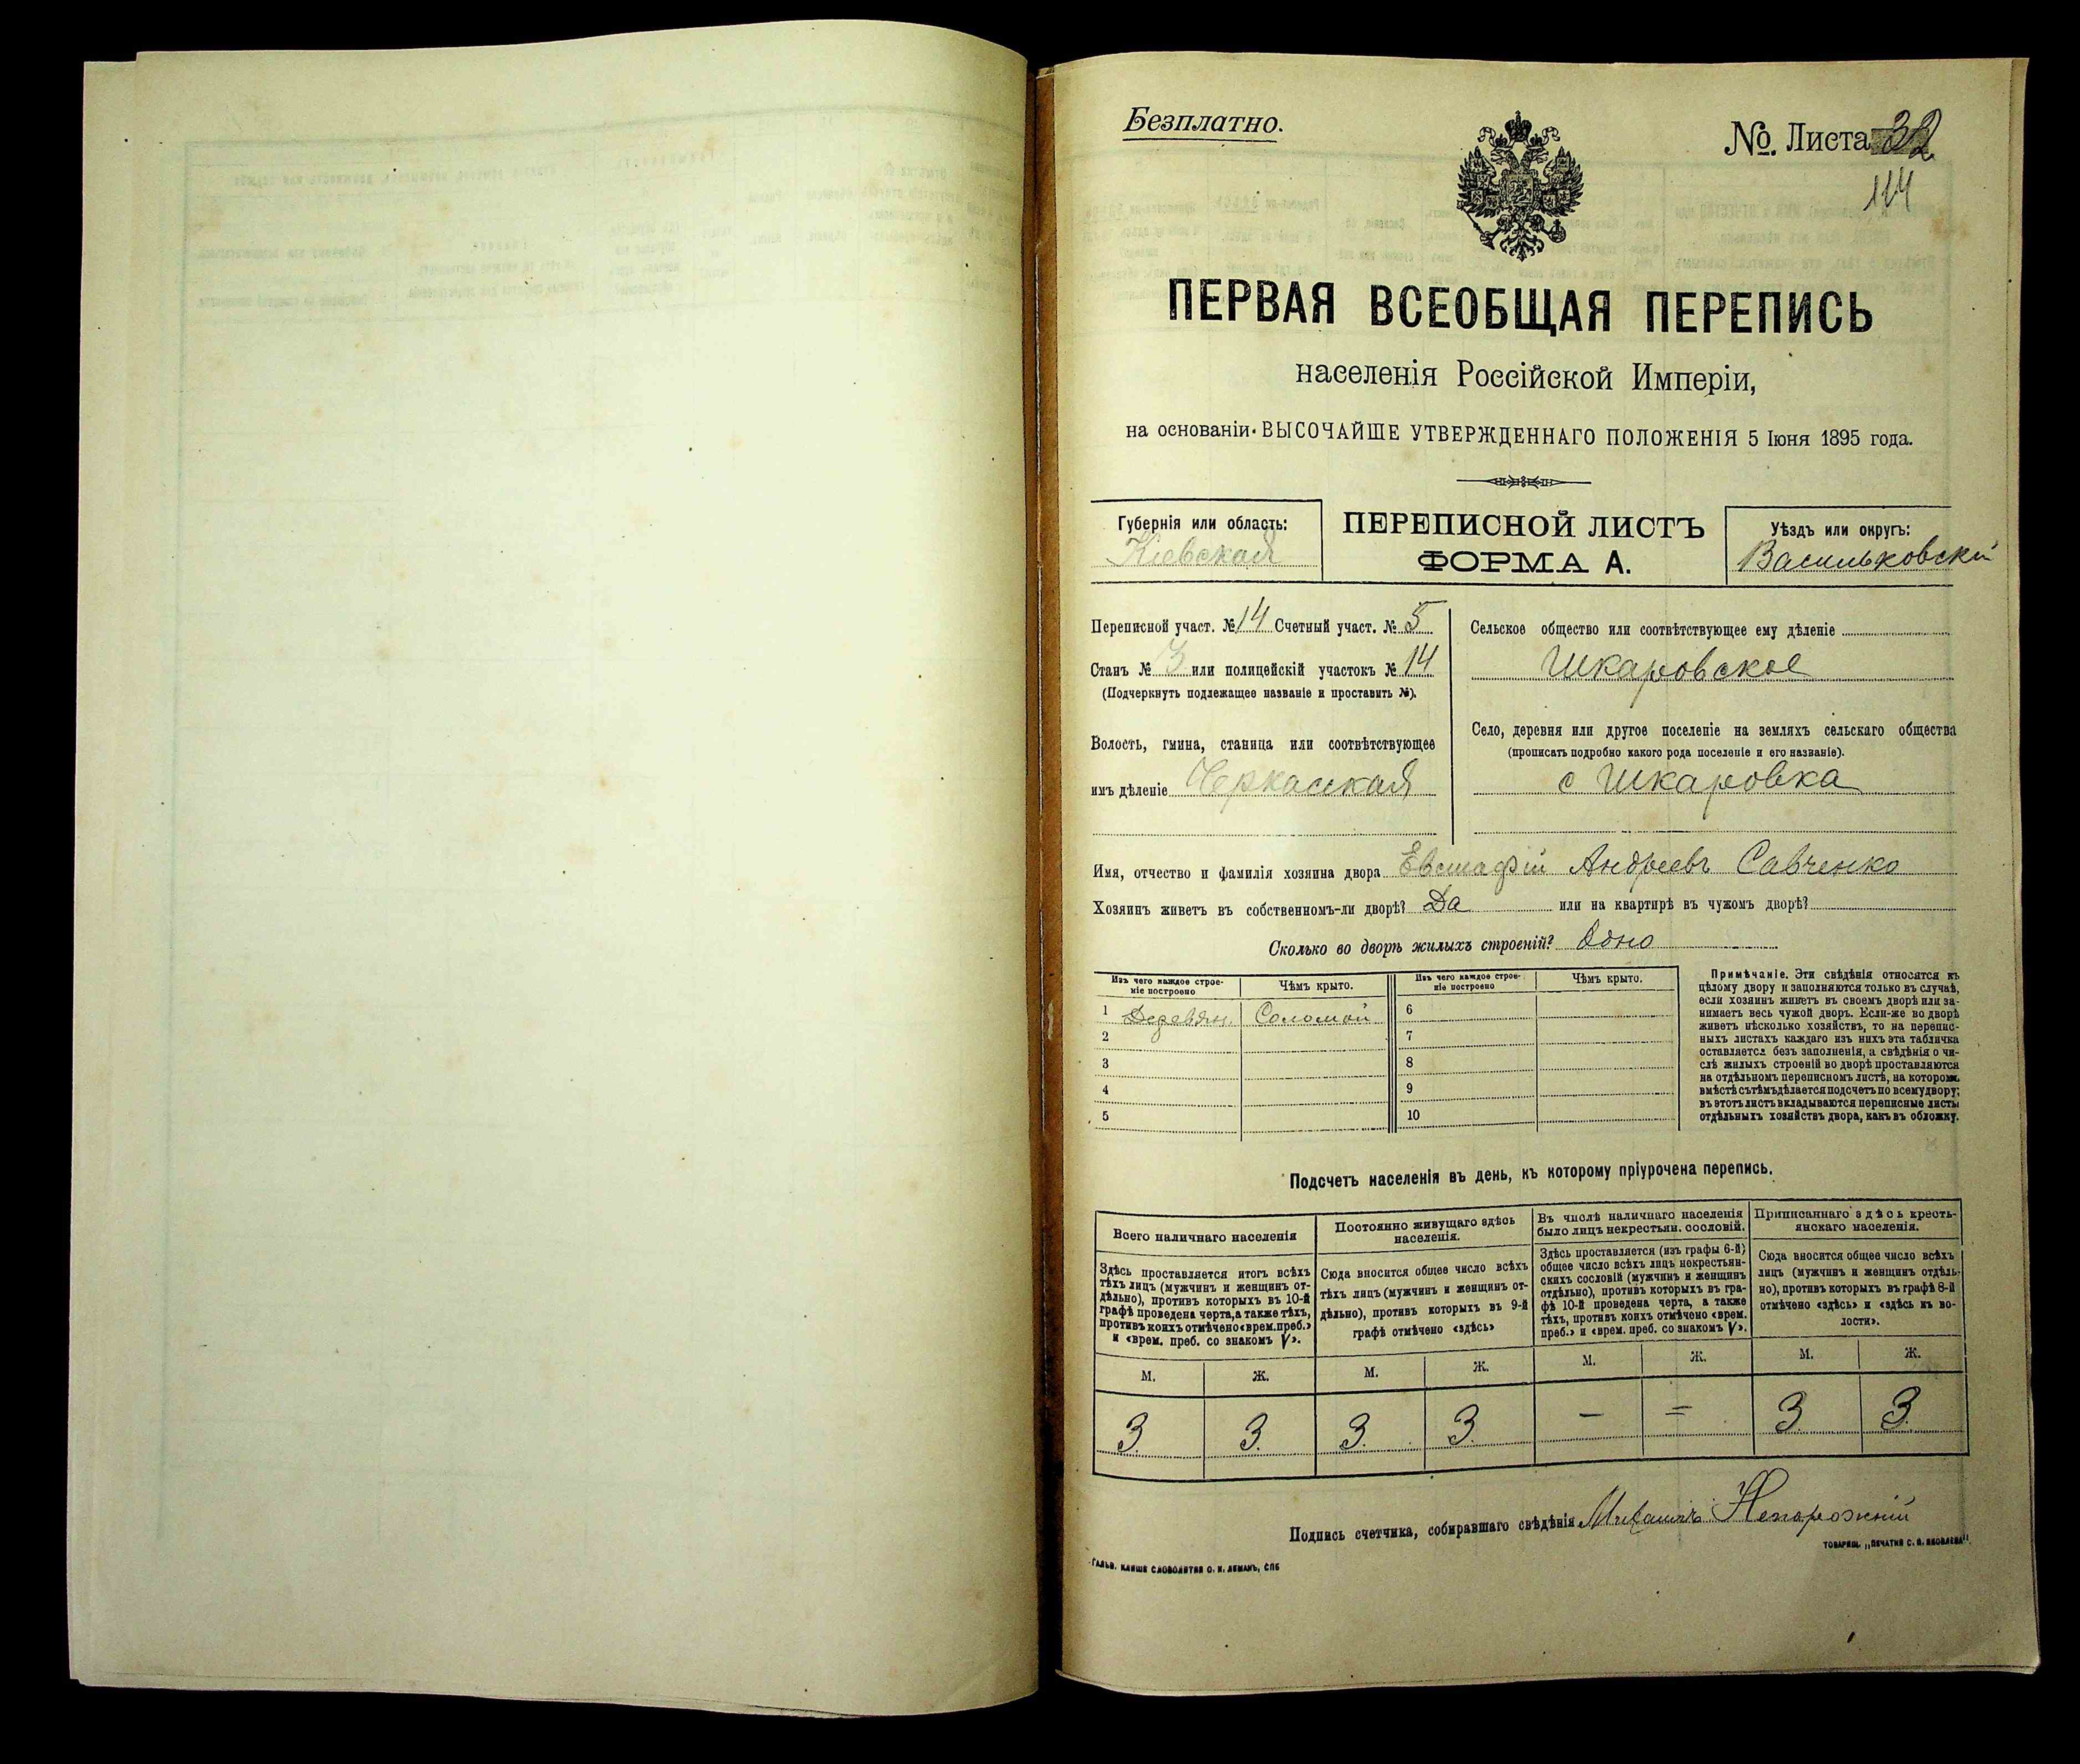 Безплатно.
№. Листа 32
114
ПЕРВАЯ ВСЕОБЩАЯ ПЕРЕПИСЬ
населенія Россійской Имперіи,
на основаніи ВЫСОЧАЙШЕ УТВЕРЖДЕННАГО ПОЛОЖЕНІЯ 5 Іюня 1895 года.
Губернія или область:
Кіевская
ПЕРЕПИСНОЙ ЛИСТЪ
ФОРМА А.
Уѣздъ или округъ:
Васильковскій
Переписной участ. № 14 Счетный участ. № 5
Станъ № 3 или полицейскій участокъ № 14
(Подчеркнуть подлежащее названіе и проставить №).
Волость, гмина, станица или соотвѣтствующее
имъ дѣленіе Черкасская
Сельское общество или соотвѣтствующее ему дѣленіе
Шкаровское
Село, деревня или другое поселеніе на земляхъ сельскаго общества
(прописать подробно какого рода поселеніе и его названіе).
с Шкаровка
Имя, отчество и фамилія хозяина двора Евстафій Андреевъ Савченко
Хозяинъ живетъ въ собственномъ-ли дворѣ? Да или на квартирѣ въ чужомъ дворѣ?
Сколько во дворѣ жилыхъ строеній? Одно
Изъ чего каждое строе-
ніе построено
Чѣмъ крыто.
Изъ чего каждое строе-
ніе построено
Чѣмъ крыто.
1 Деревян. Соломой 6
2 7
3 8
4 9
5 10
Примѣчаніе. Эти свѣдѣнія относятся къ
цѣлому двору и заполняются только въ случаѣ,
если хозяинъ живетъ въ своемъ дворѣ или за-
нимаетъ весь чужой дворъ. Если-же во дворѣ
живетъ нѣсколько хозяйствъ, то на перепис-
ныхъ листахъ каждаго изъ нихъ эта табличка
оставляется безъ заполненія, а свѣдѣнія о чи-
слѣ жилыхъ строеній во дворѣ проставляются
на отдѣльномъ переписномъ листѣ, на которомъ
вмѣстѣ съ тѣмъ дѣлается подсчетъ по всему двору;
въ этотъ листъ вкладываются переписные листы
отдѣльныхъ хозяйствъ двора, какъ въ обложку.
Подсчетъ населенія въ день, къ которому пріурочена перепись.
Всего наличнаго населенія
Здѣсь проставляется итогъ всѣхъ
тѣхъ лицъ (мужчинъ и женщинъ от-
дѣльно), противъ которыхъ въ 10-й
графѣ проведена черта, а также тѣхъ,
противъ коихъ отмѣчено «врем. преб.»
и «врем. преб. со знакомъ V».
Постоянно живущаго здѣсь
населенія.
Сюда вносится общее число всѣхъ
тѣхъ лицъ (мужчинъ и женщинъ от-
дѣльно), противъ которыхъ въ 9-й
графѣ отмѣчено «здѣсь»
Въ числѣ наличнаго населенія
было лицъ некрестьян. сословій.
Здѣсь проставляется (изъ графы 6-й)
общее число всѣхъ лицъ некрестьян-
скихъ сословій (мужчинъ и женщинъ
отдѣльно), противъ которыхъ въ гра-
фѣ 10-й проведена черта, а также
тѣхъ, противъ коихъ отмѣчено «врем.
преб.» и «врем. преб. со знакомъ V».
Приписаннаго здѣсь кресть-
янскаго населенія.
Сюда вносится общее число всѣхъ
лицъ (мужчинъ и женщинъ отдѣль-
но), противъ которыхъ въ графѣ 8-й
отмѣчено «здѣсь» и «здѣсь въ во-
лости».
М. Ж. М. Ж. М. Ж. М. Ж.
3. 3. 3. 3. — = 3. 3.
Подпись счетчика, собиравшаго свѣдѣнія Михаилъ Непорожній
ГАЛЬВ. КЛИШЕ СЛОВОЛИТНИ О. И. ЛЕМАНЪ, СПБ
ТОВАРИЩ. „ПЕЧАТНЯ С. П. ЯКОВЛЕВА".